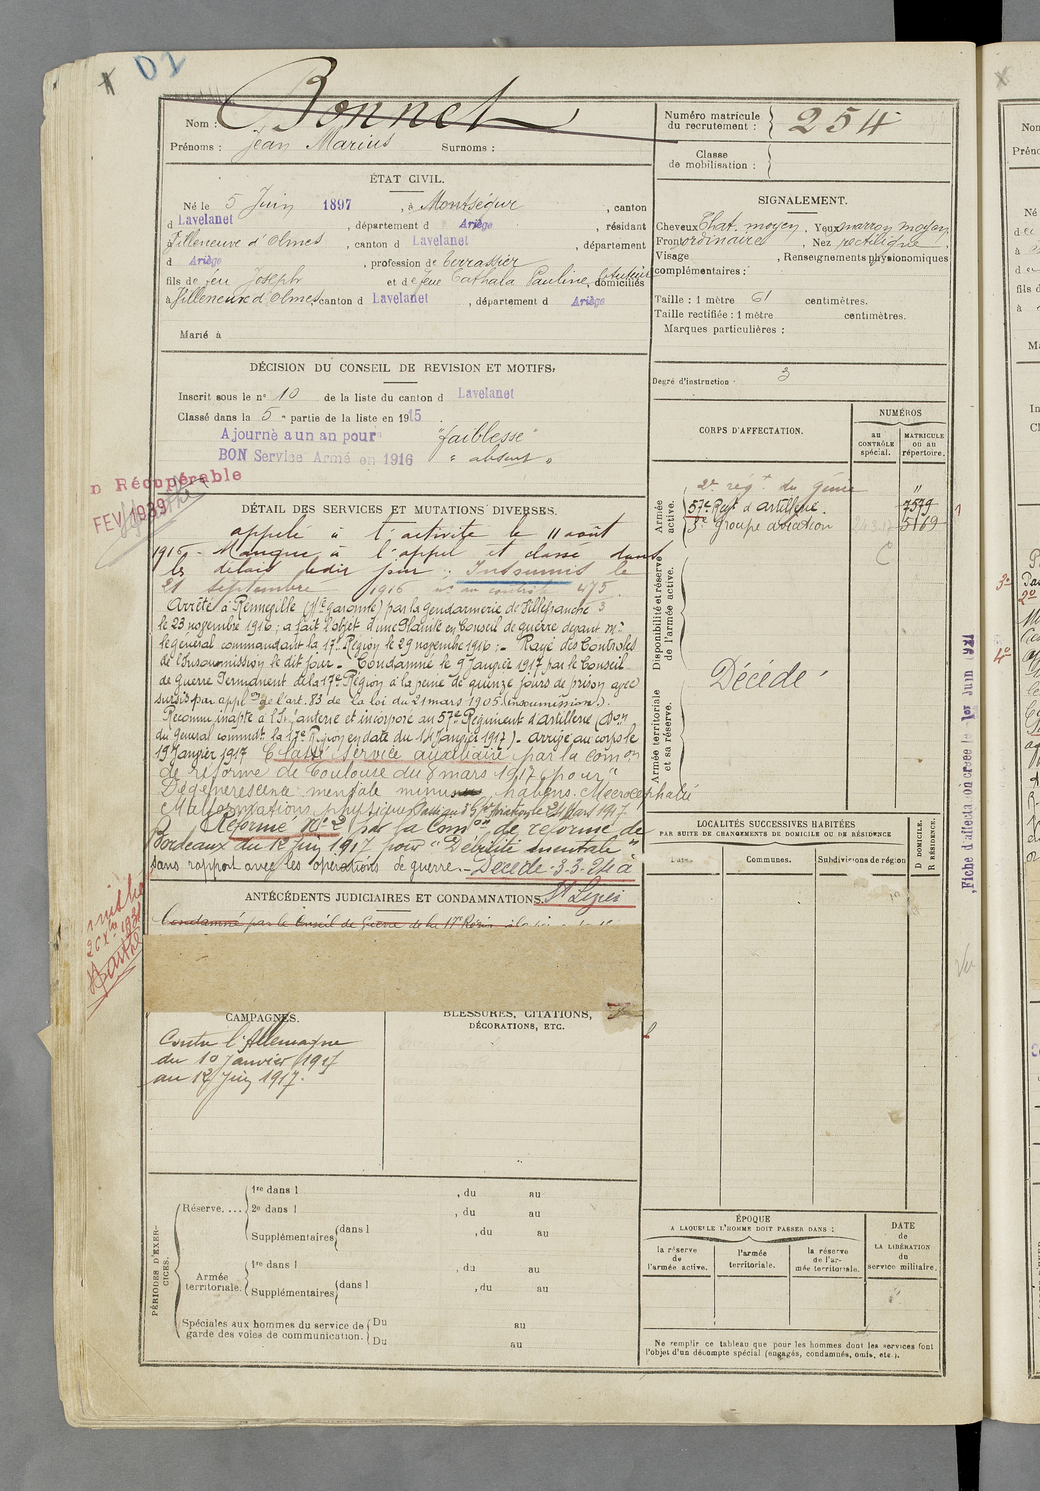 D1
Nom : Bonnet
Prénoms : Jean Marius Surnoms :
Numéro matricule du recrutement : 254
Classe de mobilisation :
ÉTAT CIVIL.
Né le 5 Juin 1897, à Montségur, canton
d Lavelanet, département d Ariège, résidant
Villeneuve d'Olmes, canton d Lavelanet, département
d Ariège, profession de terrassier
fils de feu Joseph et de feue Cathala Pauline, domiciliés
à Villeneuve d'Olmes, canton d Lavelanet, département d Ariège
Marié à
SIGNALEMENT.
Cheveux Chat. moyen. Yeux marron moyen
Front ordinaire, Nez rectiligne,
Visage , Renseignements physionomiques
complémentaires :
Taille : 1 mètre 61 centimètres.
Taille rectifiée : 1 mètre centimètres.
Marques particulières :
Degré d'instruction : 3
DÉCISION DU CONSEIL DE REVISION ET MOTIFS,
Inscrit sous le n° 10 de la liste du canton d Lavelanet
Classé dans la 5e partie de la liste en 1915
Ajourné a un an pour "faiblesse"
BON Service Armé en 1916 "absent"
n Récupérable
FEV 1939
DÉTAIL DES SERVICES ET MUTATIONS DIVERSES.
appelé à l'activité le 11 août
1916 - Manque à l'appel et classé dans
les délais ledit jour. Insoumis le
21 septembre 1916 n° au contrôle 475
Arrêté à Renneville (Hte Garonne) par la gendarmerie de Villefranche 3
le 23 novembre 1916 ; a fait l'objet d'une Plainte en Conseil de guerre devant Mr
le général commandant la 17e Région le 29 novembre 1916 ; - Rayé des Contrôles
de l'insoumission le dit jour - Condamné le 9 Janvier 1917 par le Conseil
de guerre Permanent de la 17e Région à la peine de quinze jours de prison avec
sursis par applon de l'art. 83 de la loi du 21 mars 1905 (insoumission).
Reconnu inapte à l'Infanterie et incorporé au 57e Régiment d'artillerie (Don
du Général commdt. la 17e Région en date du 14 Janvier 1917) - arrivé au corps le
19 Janvier 1917 Classé service auxiliaire par la comon
de réforme de Toulouse du 8 mars 1917 pour "
Dégénérescence mentale
Malformations physiques Passé au 3e Gpe d'aviation le 24 Mars 1917
Réformé N° 2 par la comon de réforme de
Bordeaux du 12 Juin 1917 pour "Débilité mentale"
sans rapport avec les opérations de guerre. - Décédé 3-3-24 à
St Lizier
ANTÉCÉDENTS JUDICIAIRES ET CONDAMNATIONS.
Condamné par le Conseil de Guerre de la 17e Région
CAMPAGNES.
Contre l'Allemagne
du 19 Janvier 1917
au 12 Juin 1917.
BLESSURES, CITATIONS,
DÉCORATIONS, ETC.
CORPS D'AFFECTATION.
NUMÉROS
au CONTRÔLE spécial.
MATRICULE ou au répertoire.
Armée active.
2e régt du génie "
57e Regt d'artillerie. 7579
3e groupe aviation 5169
Disponibilité et réserve de l'armée active.
Décédé
Armée territoriale et sa réserve.
Fiche d'affectation créée le 1er Juin 1921
LOCALITÉS SUCCESSIVES HABITÉES
PAR SUITE DE CHANGEMENTS DE DOMICILE OU DE RÉSIDENCE
D DOMICILE.
R RÉSIDENCE.
Dates.
Communes.
Subdivisions de région
PÉRIODES D'EXERCICES.
Réserve....
1re dans l , du au
2e dans l , du au
Supplémentaires dans l , du au
Armée territoriale.
1re dans l , du au
Supplémentaires dans l , du au
Spéciales aux hommes du service de garde des voies de communication.
Du au
Du au
ÉPOQUE
A LAQUELLE L'HOMME DOIT PASSER DANS :
la réserve de l'armée active.
l'armée territoriale.
la réserve de l'armée territoriale.
DATE
de
LA LIBÉRATION
du
service militaire.
Ne remplir ce tableau que pour les hommes dont les services font
l'objet d'un décompte spécial (engagés, condamnés, omis, etc.).